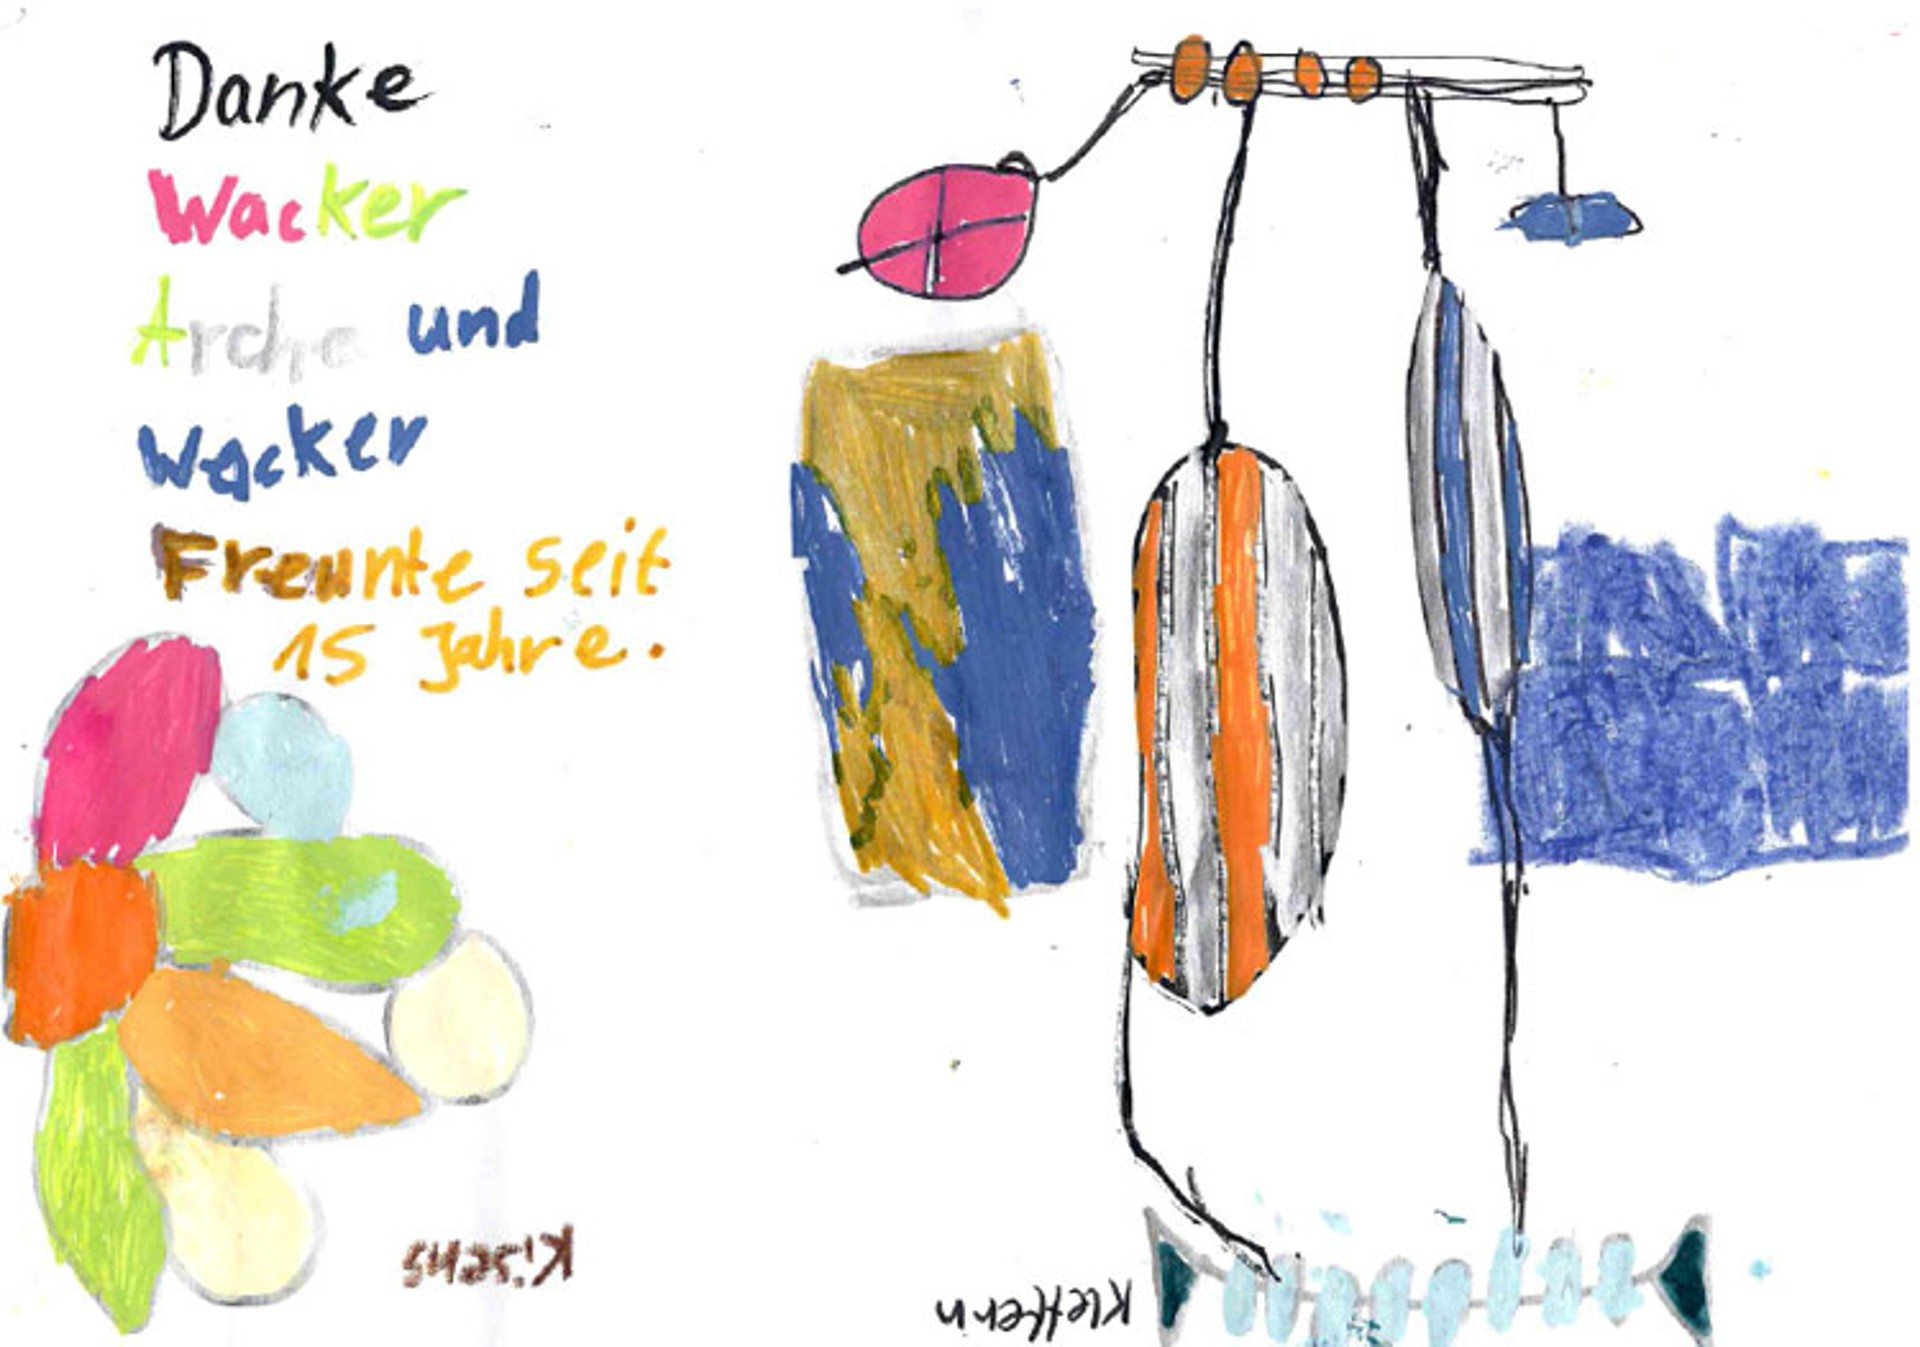 Danke
Wacker
Arche und
Wacker
Freunte seit
15 Jahre.
Klettern